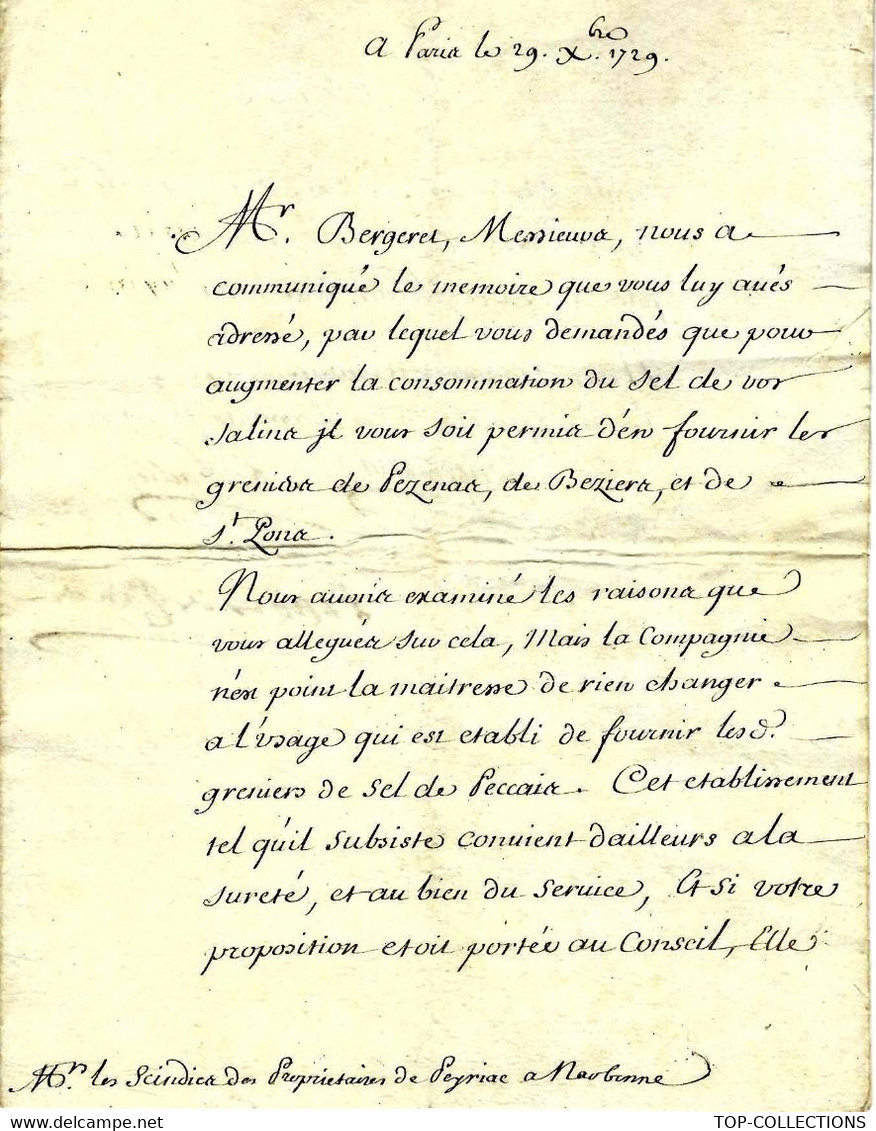 A Paris le 29. Xbre 1729.
Mr. Bergeret, Messieurs, nous a
communiqué le memoire que vous luy avés
adressé, par lequel vous demandés que pour
augmenter la consommation du sel de vos
salins jl vous soit permis d'en fournir les
greniers de Pezenas, de Beziers, et de
St. Pons.
Nous avons examiné les raisons que
vous allegués sur cela, Mais la Compagnie
n'est point la maitresse de rien changer
a l'vsage qui est etabli de fournir lesd.
greniers de sel de Peccais. Cet etablissement
tel qu'il subsiste convient d'ailleurs a la
sureté, et au bien du service, Et si votre
proposition etoit portée au Conseil, Elle
Mrs. les Scindics des Proprietaires de Peyriac a Narbonne
TOP-COLLECTIONS